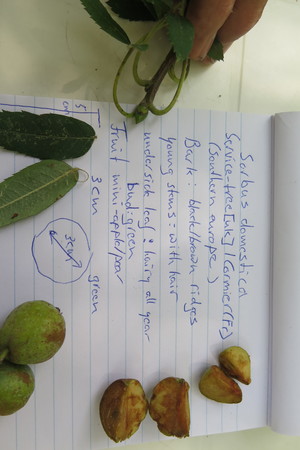 Sorbus domestica
Service tree [UK] / Cormier (Fr)
(Southern europe)
Bark: black/brown ridges
young stems: with hair
underside leaf: hairy all year
bud: green
fruit mini-apple/pear
3cm green
3cm
5